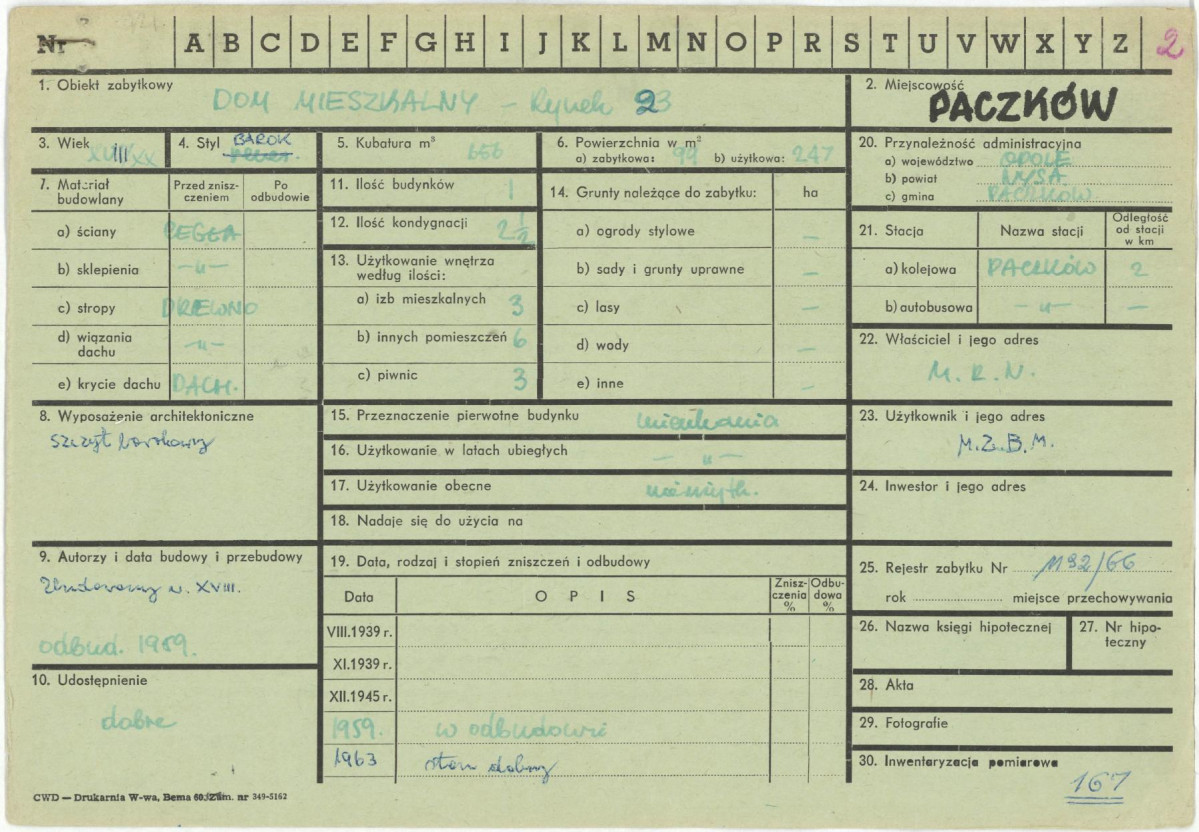 Nr A B C D E F G H I J K L M N O P R S T U V W X Y Z 2
1. Obiekt zabytkowy
DOM MIESZKALNY – Rynek 23
2. Miejscowość
PACZKÓW
3. Wiek XVIII
4. Styl BAROK
5. Kubatura m³ 656
6. Powierzchnia w m²
a) zabytkowa: 99 b) użytkowa: 247
20. Przynależność administracyjna
a) województwo OPOLE
b) powiat NYSA
c) gmina PACZKÓW
7. Materiał budowlany
Przed zniszczeniem
Po odbudowie
a) ściany CEGŁA
b) sklepienia –„–
c) stropy DREWNO
d) wiązania dachu –„–
e) krycie dachu DACH.
11. Ilość budynków 1
12. Ilość kondygnacji 2 1/2
13. Użytkowanie wnętrza
według ilości:
a) izb mieszkalnych 3
b) innych pomieszczeń 6
c) piwnic 3
14. Grunty należące do zabytku: ha
a) ogrody stylowe –
b) sady i grunty uprawne –
c) lasy –
d) wody –
e) inne –
21. Stacja
Nazwa stacji
Odległość
od stacji
w km
a) kolejowa PACZKÓW 2
b) autobusowa –„– –
22. Właściciel i jego adres
M. R. N.
8. Wyposażenie architektoniczne
Szczyt barokowy
15. Przeznaczenie pierwotne budynku mieszkania
16. Użytkowanie w latach ubiegłych –„–
17. Użytkowanie obecne
18. Nadaje się do użycia na
23. Użytkownik i jego adres
M.Z.B.M.
24. Inwestor i jego adres
9. Autorzy i data budowy i przebudowy
Zbudowany w. XVIII.
odbud. 1959.
10. Udostępnienie
dobre
19. Data, rodzaj i stopień zniszczeń i odbudowy
Data
OPIS
Zniszczenia
%
Odbudowa
%
VIII.1939 r.
XI.1939 r.
XII.1945 r.
1959. w odbudowie
1963 stan dobry
25. Rejestr zabytku Nr 1192/66
rok miejsce przechowywania
26. Nazwa księgi hipotecznej
27. Nr hipoteczny
28. Akta
29. Fotografie
30. Inwentaryzacja pomiarowa
167
CWD — Drukarnia W-wa, Bema 60. Zam. nr 349-5162